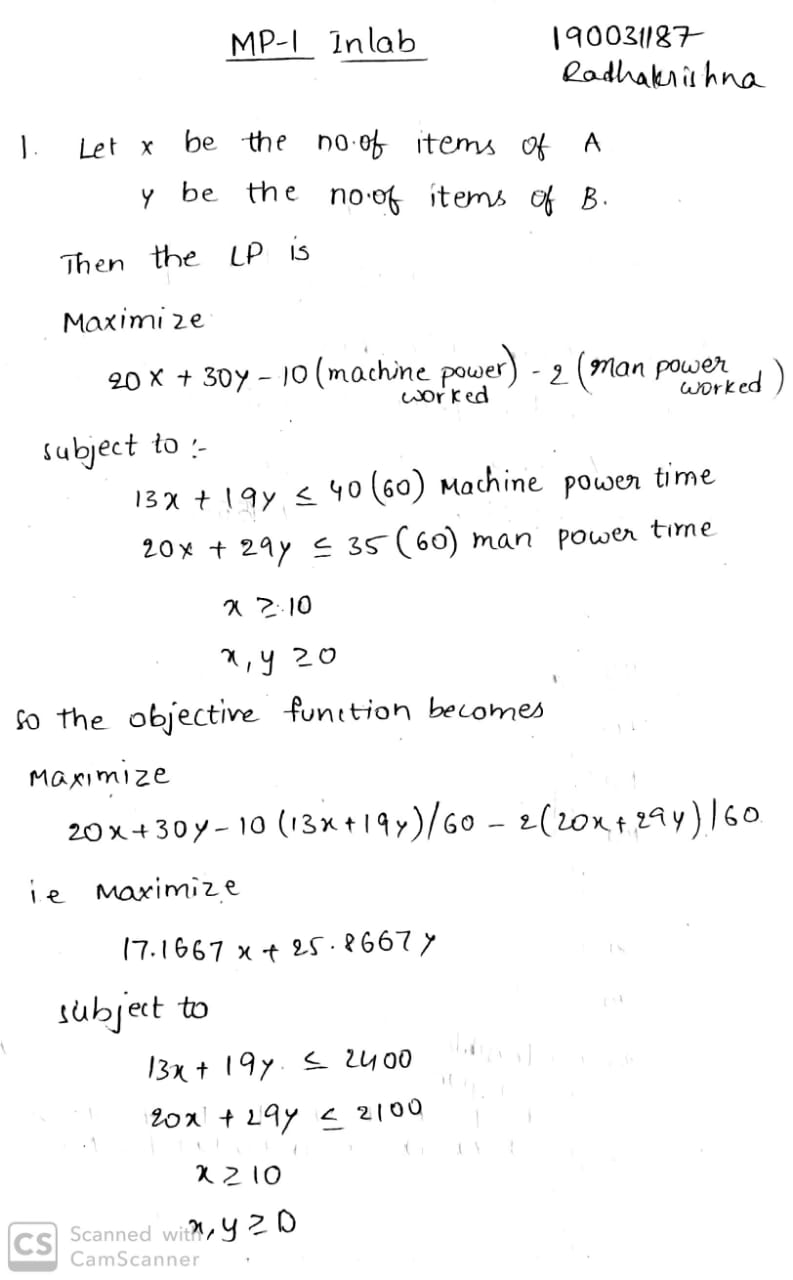 MP-1 Inlab
190031187
Radhakrishna
1. Let x be the no.of items of A
y be the no.of items of B.
Then the LP is
Maximize
20x + 30y - 10 (machine power worked) - 2 (man power worked)
subject to :-
13x + 19y ≤ 40 (60) Machine power time
20x + 29y ≤ 35 (60) man power time
x ≥ 10
x, y ≥ 0
so the objective function becomes
Maximize
20x + 30y - 10 (13x + 19y)/60 - 2(20x + 29y)/60
ie Maximize
17.1667 x + 25.8667 y
subject to
13x + 19y ≤ 2400
20x + 29y ≤ 2100
x ≥ 10
x, y ≥ 0
CS Scanned with
CamScanner